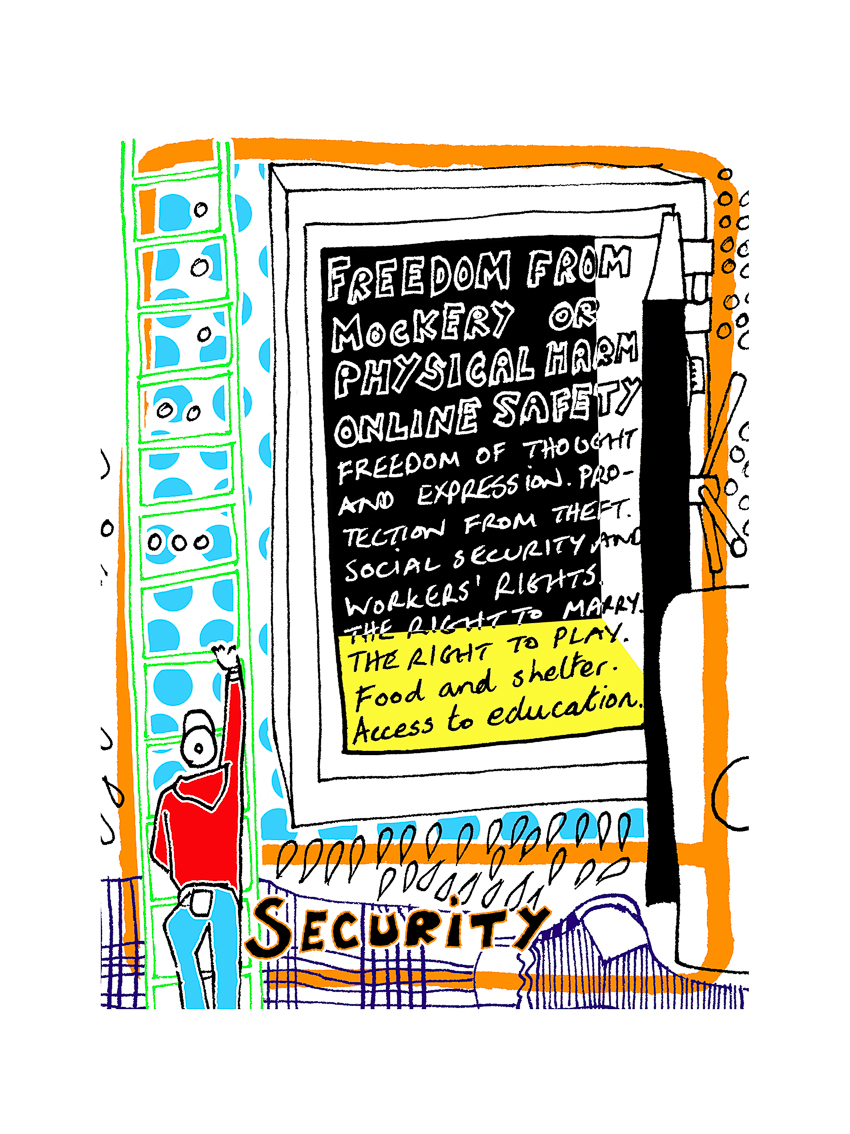 FREEDOM FROM
MOCKERY OR
PHYSICAL HARM
ONLINE SAFETY
FREEDOM OF THOUGHT
AND EXPRESSION. PRO-
TECTION FROM THEFT.
SOCIAL SECURITY, AND
WORKERS' RIGHTS.
THE RIGHT TO MARRY.
THE RIGHT TO PLAY.
Food and shelter.
Access to education.
SECURITY